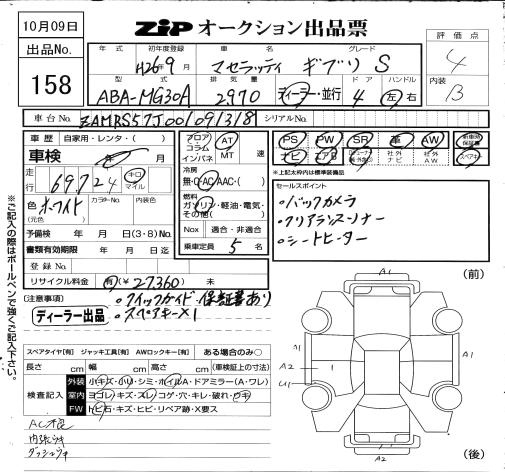 10月09日
ZiP オークション出品票
出品No.
158
年式 初年度登録 車名 グレード
H26年9月 マセラッティ ギブリ S
型式 排気量 ドア ハンドル
ABA-MG30A 2970 ディーラー・並行 4 左・右
評価点
4
内装
B
車台No. ZAMRS57J001091318 シリアルNo.
車歴 自家用・レンタ・( )
車検 年 月
走行 69,724 キロ マイル
色 ホワイト カラーNo. 内装色
(元色)
予備検 年 月 日(3・8)No.
書類有効期限 年 月 日迄
登録No.
リサイクル料金 有(¥27,360) 未
フロア コラム インパネ AT MT 速
冷房
無・AC・AAC・( )
燃料
ガソリン・軽油・電気・その他( )
Nox 適合・非適合
乗車定員 5 名
PS PW SR 革 AW 新車時保証書
ナビ エアB 社外ナビ 社外AW スペアキー
*上記太枠内は標準装備品
セールスポイント
・バックカメラ
・クリアランスソナー
・シートヒーター
(注意事項) ・クイックガイド・保証書あり
ディーラー出品 ・スペアキー×1
※ご記入の際はボールペンで強くご記入下さい。
スペアタイヤ[有] ジャッキ工具[有] AWロックキー[有] ある場合のみ○
長さ cm 幅 cm 高さ cm (車検証上の寸法)
検査記入
外装 小キズ・小リ・シミ・ホイルA・ドアミラー(A・ワレ)
室内 ヨゴレ・キズ・スレ・コゲ・穴・キレ・破れ・ウキ
FW トビ石・キズ・ヒビ・リペア跡・X要ス
AC不良
内張ウキ
ダッシュウキ
(前)
A1
A1
A2
U1
1
A1
A2
(後)